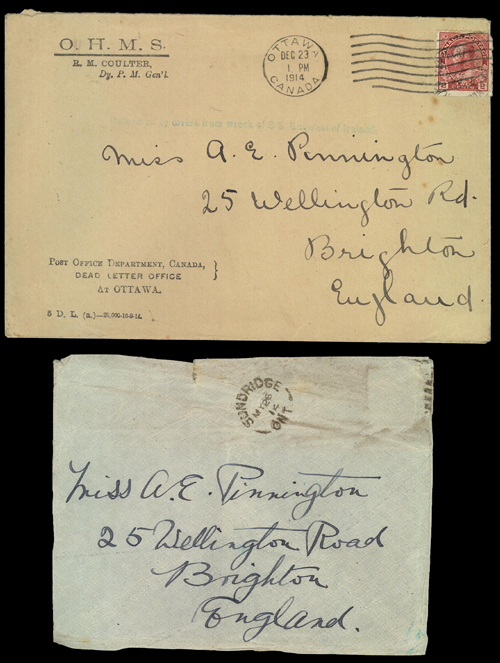 O. H. M. S.
R. M. COULTER,
Dy. P. M. Gen'l.
OTTAWA
DEC 23
1. PM
1914
CANADA
from wreck of S. S. Empress of Ireland.
Miss A. E. Pennington
25 Wellington Rd.
Brighton
England.
POST OFFICE DEPARTMENT, CANADA,
DEAD LETTER OFFICE
At OTTAWA.
5 D. L. (a.)—20,000-16-9-14.
SUNDRIDGE
MY 26
14
ONT
Miss A. E. Pinnington
25 Wellington Road
Brighton
England.